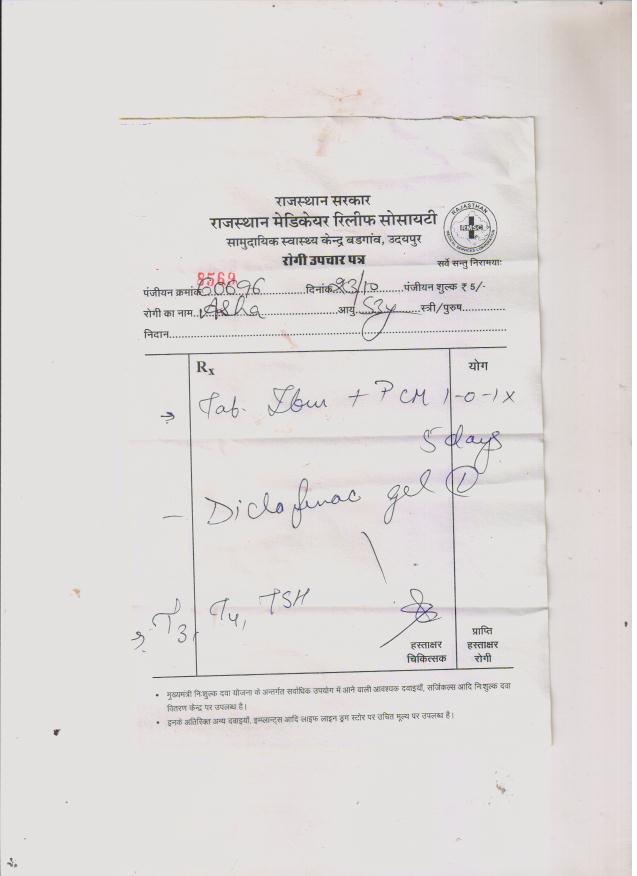 राजस्थान सरकार
राजस्थान मेडिकेयर रिलीफ सोसायटी
सामुदायिक स्वास्थ्य केन्द्र बडगांव, उदयपुर
रोगी उपचार पत्र
RAJASTHAN
RMSCL
MEDICAL SERVICES CORPORATION
सर्वे सन्तु निरामयाः
पंजीयन क्रमांक दिनांक 23/10 पंजीयन शुल्क ₹ 5/-
रोगी का नाम Asha आयु 53y स्त्री/पुरुष
निदान
Rx योग
→ Tab. Ibu + PCM 1-0-1 x
5 days
— Diclofenac gel ①
T3, T4, TSH
हस्ताक्षर चिकित्सक
प्राप्ति हस्ताक्षर रोगी
• मुख्यमंत्री निःशुल्क दवा योजना के अन्तर्गत सर्वाधिक उपयोग में आने वाली आवश्यक दवाइयाँ, सर्जिकल्स आदि निःशुल्क दवा
वितरण केन्द्र पर उपलब्ध है।
• इनके अतिरिक्त अन्य दवाइयाँ, इम्प्लान्ट्स आदि लाइफ लाइन ड्रग स्टोर पर उचित मूल्य पर उपलब्ध है।